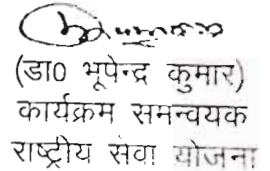 (डा0 भूपेन्द्र कुमार)
कार्यक्रम समन्वयक
राष्ट्रीय सेवा योजना